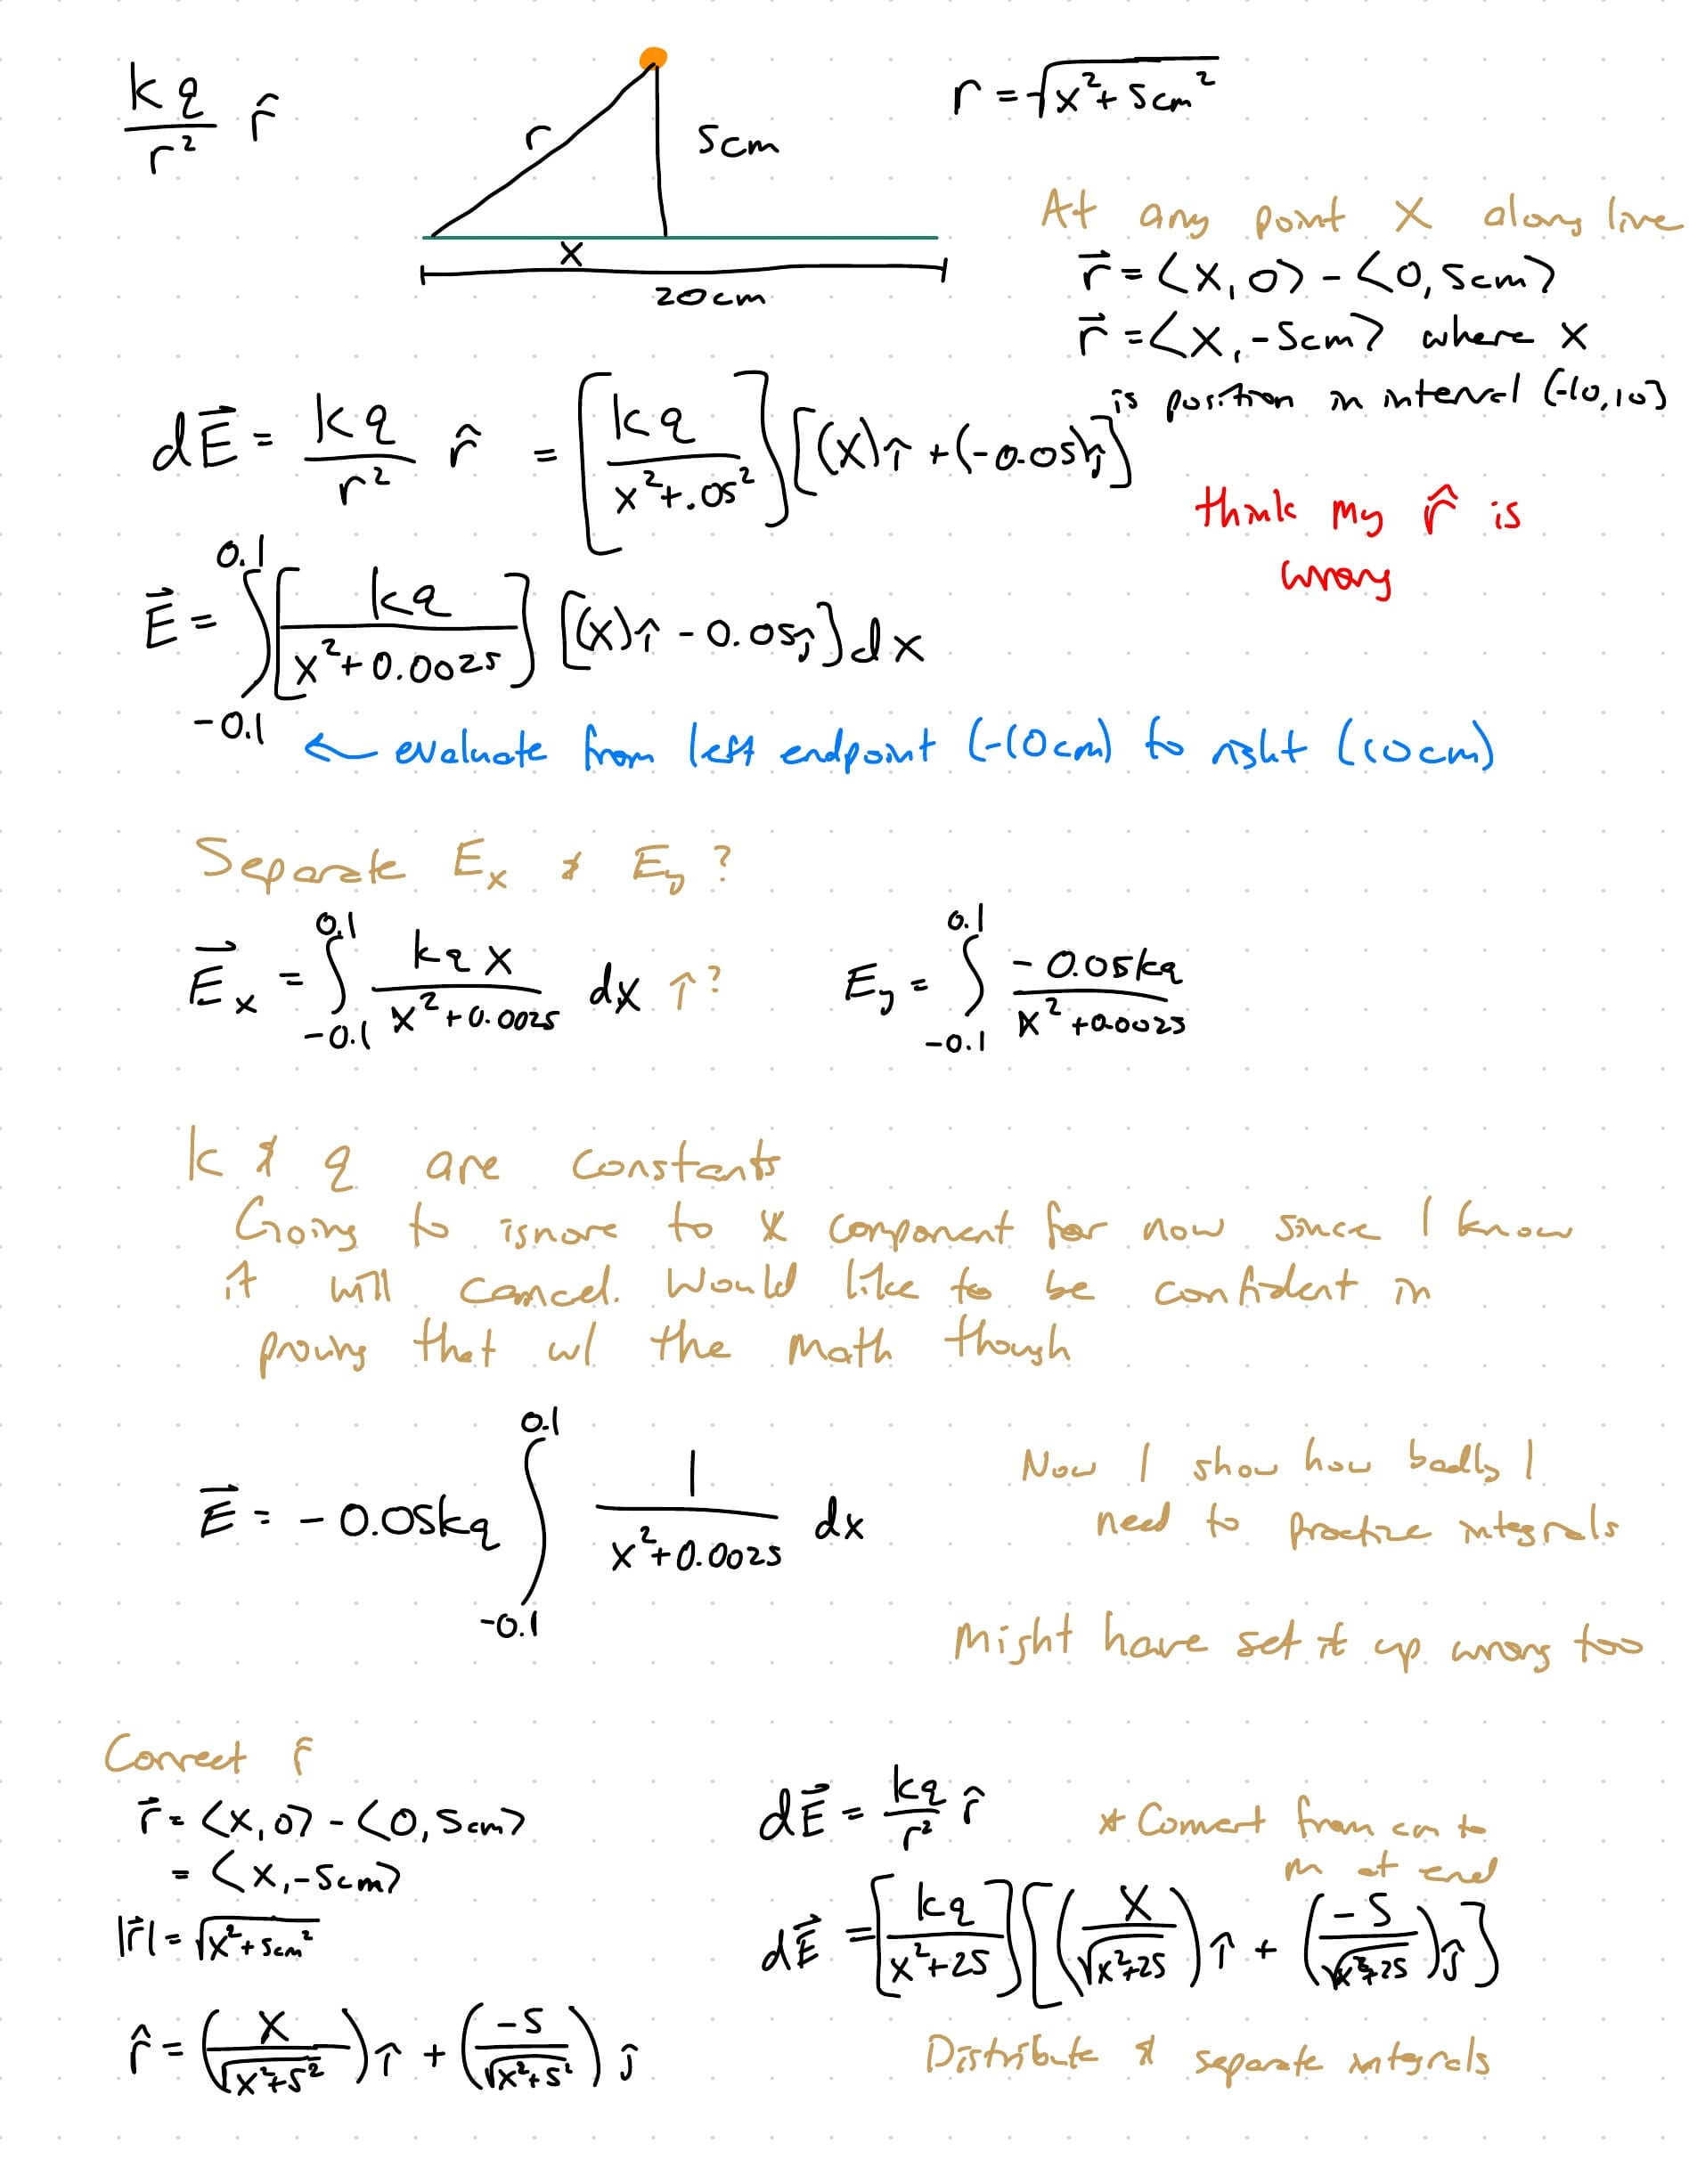 kq/r² r̂
r
5cm
x
20cm
r = √(x² + 5cm²)
At any point x along line
r⃗ = <x, 0> - <0, 5cm>
r⃗ = <x, -5cm> where x
is position in interval (-10, 10)
dE⃗ = kq/r² r̂ = [kq/(x² + .05²)] [(x)î + (-0.05)ĵ]
think my r̂ is
wrong
E⃗ = ∫_{-0.1}^{0.1} [kq/(x² + 0.0025)] [(x)î - 0.05ĵ] dx
← evaluate from left endpoint (-10cm) to right (10cm)
Separate Ex & Ey ?
E⃗x = ∫_{-0.1}^{0.1} kqx/(x² + 0.0025) dx î?
Ey = ∫_{-0.1}^{0.1} -0.05kq/(x² + 0.0025)
k & q are constants
Going to ignore to x component for now since I know
it will cancel. Would like to be confident in
proving that w/ the math though
E⃗ = -0.05kq ∫_{-0.1}^{0.1} 1/(x² + 0.0025) dx
Now I show how badly I
need to practice integrals
Might have set it up wrong too
Correct r̂
r⃗ = <x, 0> - <0, 5cm>
= <x, -5cm>
|r⃗| = √(x² + 5cm²)
r̂ = (x/√(x² + 5²)) î + (-5/√(x² + 5²)) ĵ
dE⃗ = kq/r² r̂
* Convert from cm to
m at end
dE⃗ = [kq/(x² + 25)] [(x/√(x² + 25)) î + (-5/√(x² + 25)) ĵ]
Distribute & separate integrals